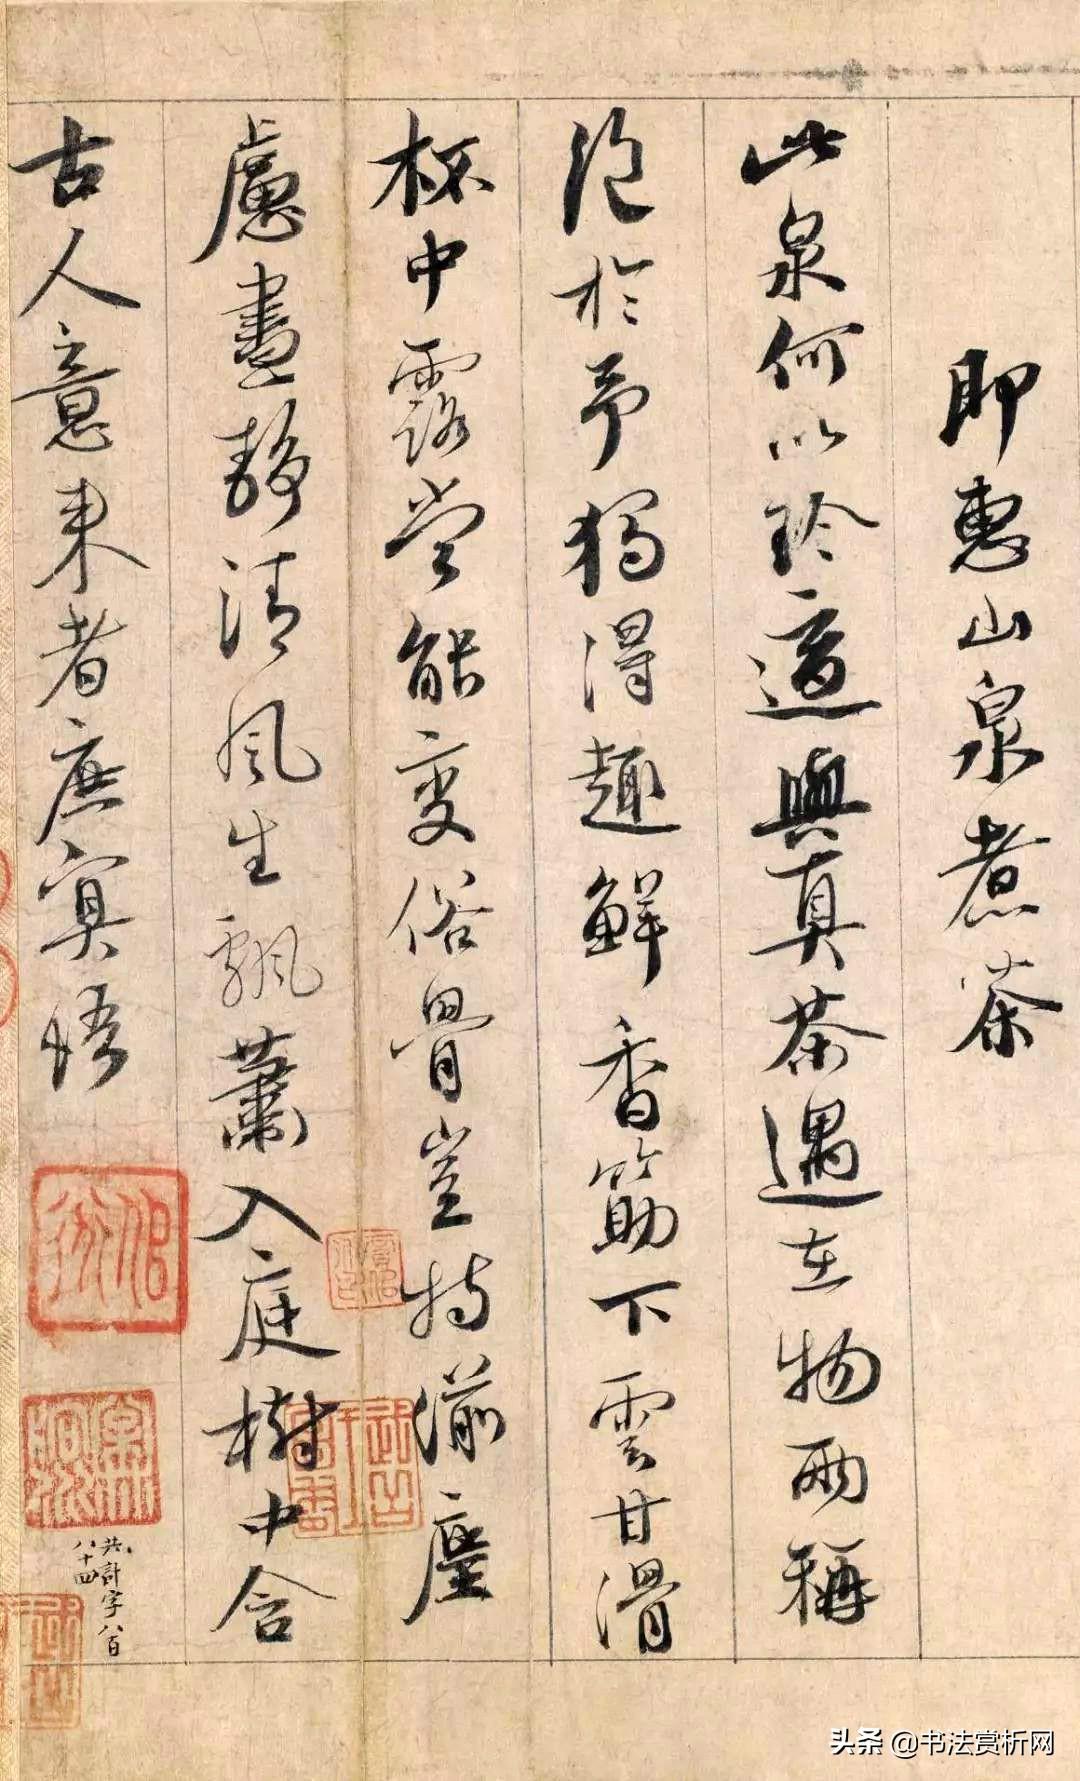 即惠山泉煮茶
此泉何以珍適與真茶遇在物兩稱
絕於予獨得趣鮮香筯下雲甘滑
杯中露當能變俗骨豈特湔塵
慮晝靜清風生飄蕭入庭樹中含
古人意來者庶冥悟
共計字八百
八十四
头条 @书法赏析网